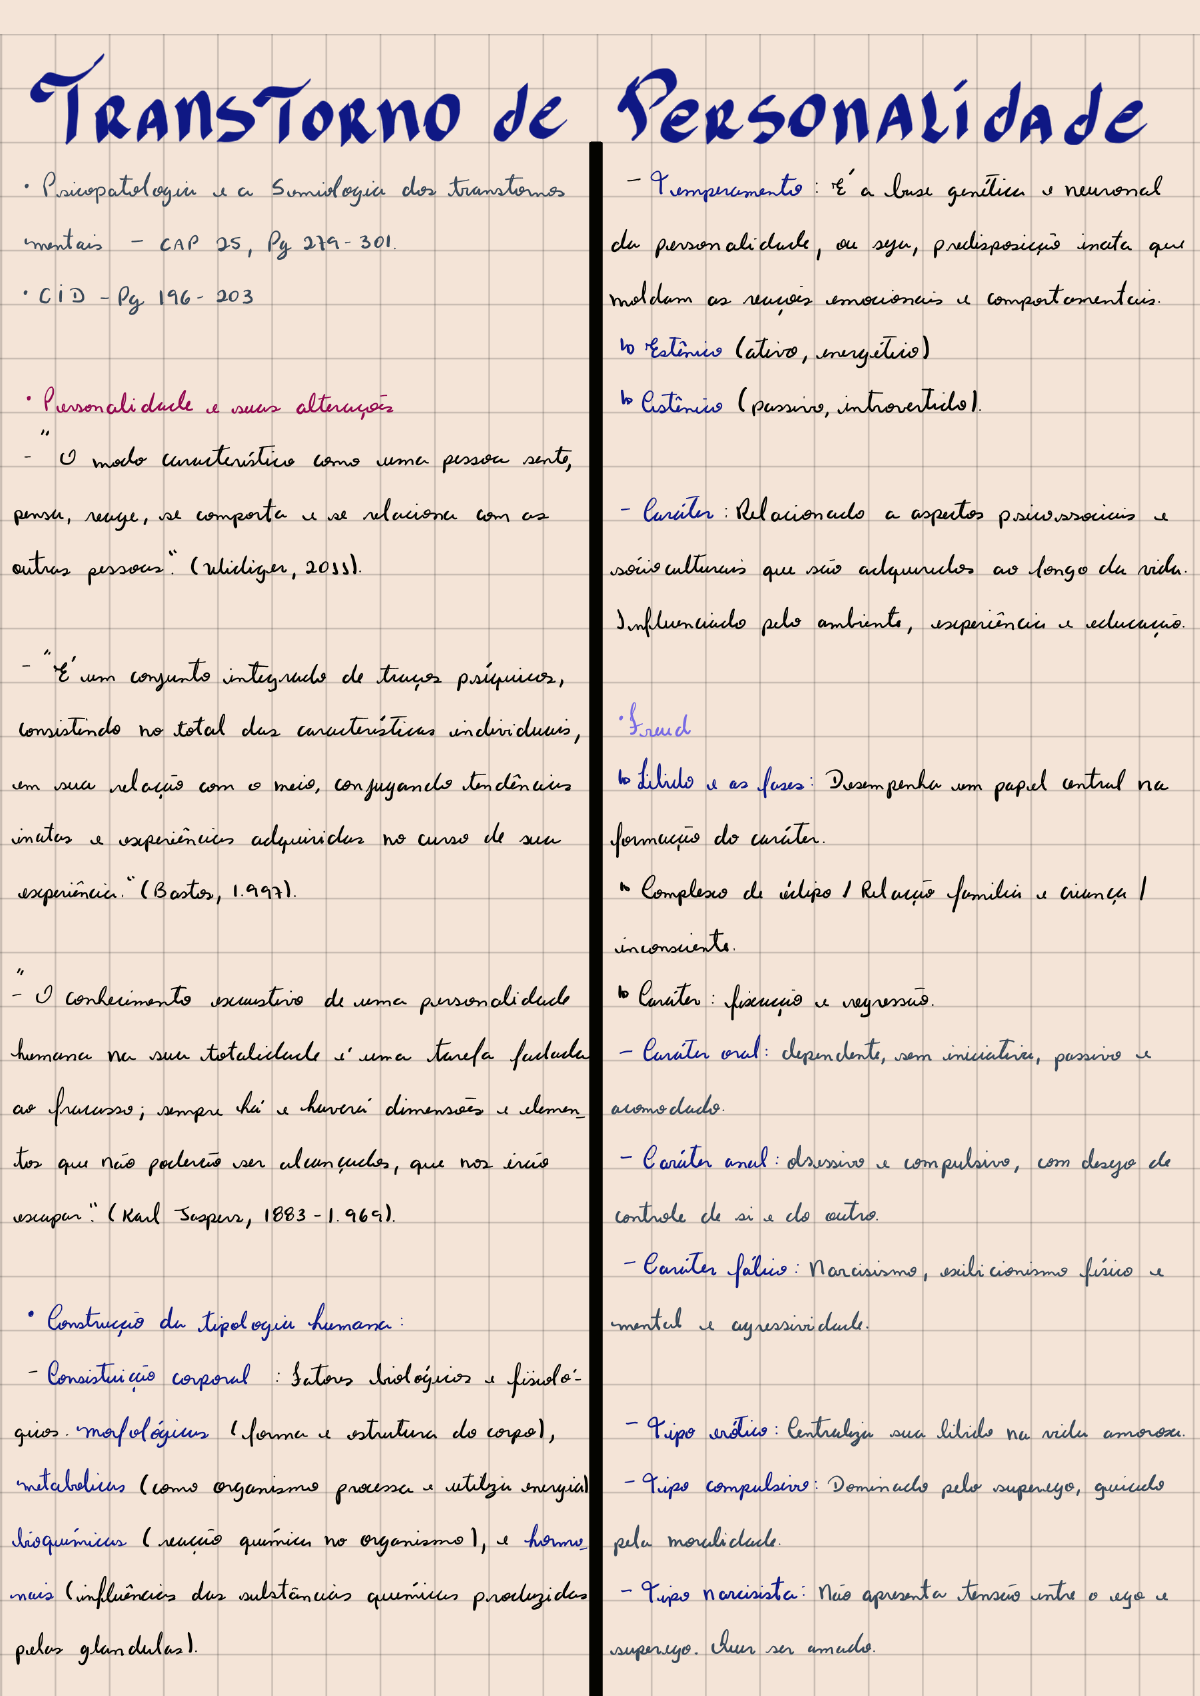 Transtorno de Personalidade
• Psicopatologia e a Semiologia dos transtornos
mentais - CAP 25, Pg 279-301.
• CiD - Pg 196-203
• Personalidade e suas alterações
- "O modo característico como uma pessoa sente,
pensa, reage, se comporta e se relaciona com as
outras pessoas". (Widiger, 2011).
- "É um conjunto integrado de traços psíquicos,
consistindo no total das características individuais,
em sua relação com o meio, conjugando tendências
inatas e experiências adquiridas no curso de sua
experiência." (Bastos, 1.997).
- "O conhecimento exaustivo de uma personalidade
humana na sua totalidade é uma tarefa fadada
ao fracasso; sempre há e haverá dimensões e elemen-
tos que não poderão ser alcançados, que nos irão
escapar". (Karl Jaspers, 1883-1.969).
• Construção da tipologia humana:
- Consistuição corporal : Fatores biológicos e fisioló-
gicos. morfológicas (forma e estrutura do corpo),
metabólicas (como organismo processa e utiliza energia)
bioquímicas (reação química no organismo), e hormo-
nais (influências das substâncias químicas produzidas
pelas glandulas).
- Temperamento: É a base genética e neuronal
da personalidade, ou seja, predisposição inata que
moldam as reações emocionais e comportamentais.
↳ Estênico (ativo, energético)
↳ Astênico (passivo, introvertido).
- Caráter: Relacionado a aspectos psicossociais e
sócioculturais que são adquiridos ao longo da vida.
Influenciado pelo ambiente, experiência e educação.
• Freud
↳ Libido e as fases: Desempenha um papel central na
formação do caráter.
↳ Complexo de édipo / Relação família e criança /
inconsciente.
↳ Caráter: fixação e regressão.
- Caráter oral: dependente, sem iniciativa, passivo e
acomodado.
- Caráter anal: obsessivo e compulsivo, com desejo de
controle de si e do outro.
- Caráter fálico: Narcisismo, exibicionismo físico e
mental e agressividade.
- Tipo erótico: Centraliza sua libido na vida amorosa.
- Tipo compulsivo: Dominado pelo superego, guiado
pela moralidade.
- Tipo narcisista: Não apresenta tensão entre o ego e
superego. Quer ser amado.